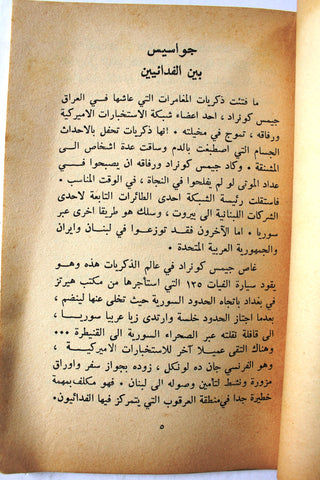 جواسيس
بين الفدائيين
ما فتئت ذكريات المغامرات التي عاشها في العراق
جيمس كونراد ، احد اعضاء شبكة الاستخبارات الاميركية
ورفاقه ، تموج في مخيلته . انها ذكريات تحفل بالاحداث
الجسام التي اصطبغت بالدم وساقت عدة اشخاص الى
المشنقة . وكاد جيمس كونراد ورفاقه ان يصبحوا في
عداد الموتى لو لم يفلحوا في النجاة ، في الوقت المناسب .
فاستقلت رئيسة الشبكة احدى الطائرات التابعة لاحدى
الشركات اللبنانية الى بيروت ، وسلك هو طريقا اخرى عبر
سوريا . اما الآخرون فقد توزعوا في لبنان وايران
والجمهورية العربية المتحدة .
غاص جيمس كونراد في عالم الذكريات هذه وهو
يقود سيارة الفيات ١٢٥ التي استأجرها من مكتب هيرتز
في بغداد باتجاه الحدود السورية حيث تخلى عنها لينضم ،
بعدما اجتاز الحدود خلسة وارتدى زيا عربيا سوريا ،
الى قافلة نقلته عبر الصحراء السورية الى القنيطرة ...
وهناك التقى عميلا آخر للاستخبارات الاميركية ،
وهو الفرنسي جان ده لونكل ، زوده بجواز سفر واوراق
مزورة ونشط لتأمين وصوله الى لبنان . فهو مكلف بمهمة
خطيرة جدا في منطقة العرقوب التي يتمركز فيها الفدائيون .
٥